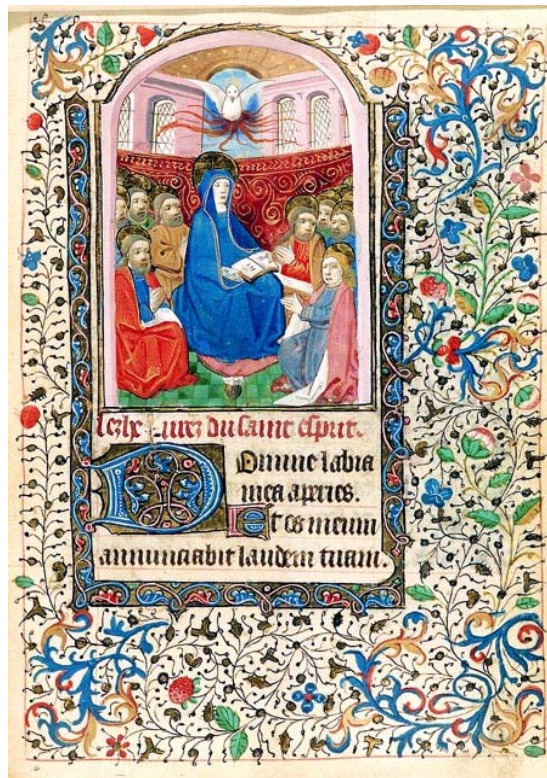 lez heurez du saint esprit.
Domine labia
mea aperies.
Et os meum
annunciabit laudem tuam.